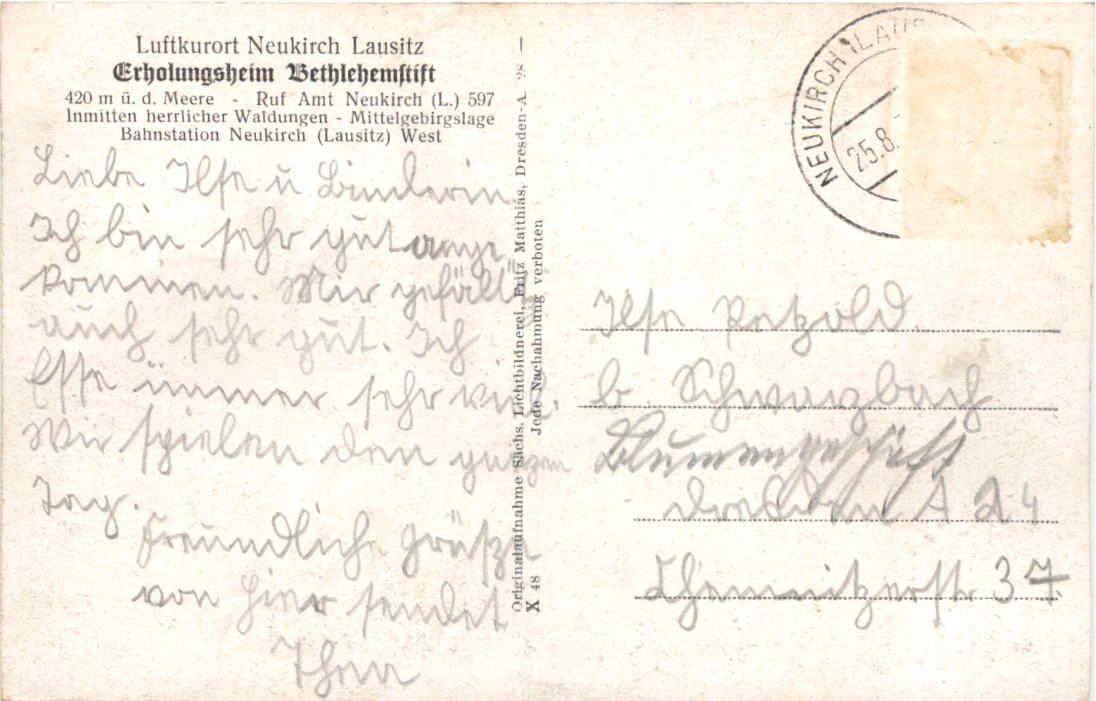 Luftkurort Neukirch Lausitz
Erholungsheim Bethlehemstift
420 m ü. d. Meere - Ruf Amt Neukirch (L.) 597
Inmitten herrlicher Waldungen - Mittelgebirgslage
Bahnstation Neukirch (Lausitz) West
Liebe Ilse u
Ich bin sehr gut ange
kommen. Mir gefällt
auch sehr gut. Ich
esse immer sehr viel.
Wir spielen den ganzen
Tag.
Freundliche Grüße
von hier sendet
Originalaufnahme Sächs. Lichtbildnerei, Fritz Matthias, Dresden-A. 28
Jede Nachahmung verboten
X 48
NEUKIRCH (LAUS
25.8.
Ilse Petzold.
b. Schwarzbach
Blumengeschäft
Dresden A 24
Chemnitzerstr 37.